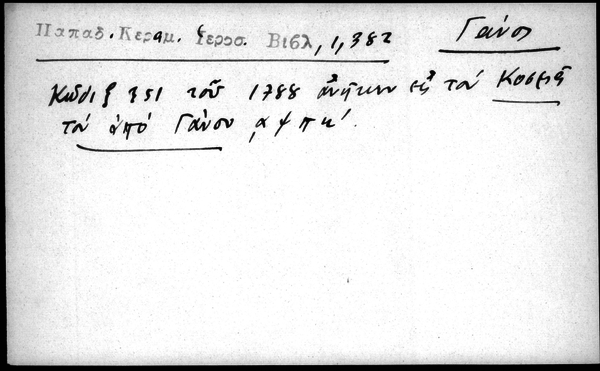 Παπαδ. Κεραμ. Ιεροσ. Βιβλ, 1, 382 Γάνος
Κώδιξ 351 τοῦ 1788 ἀνῆκων εἰς τὸν Κοσμᾶ
τὸν ἀπὸ Γάνου ͵αψπη΄.